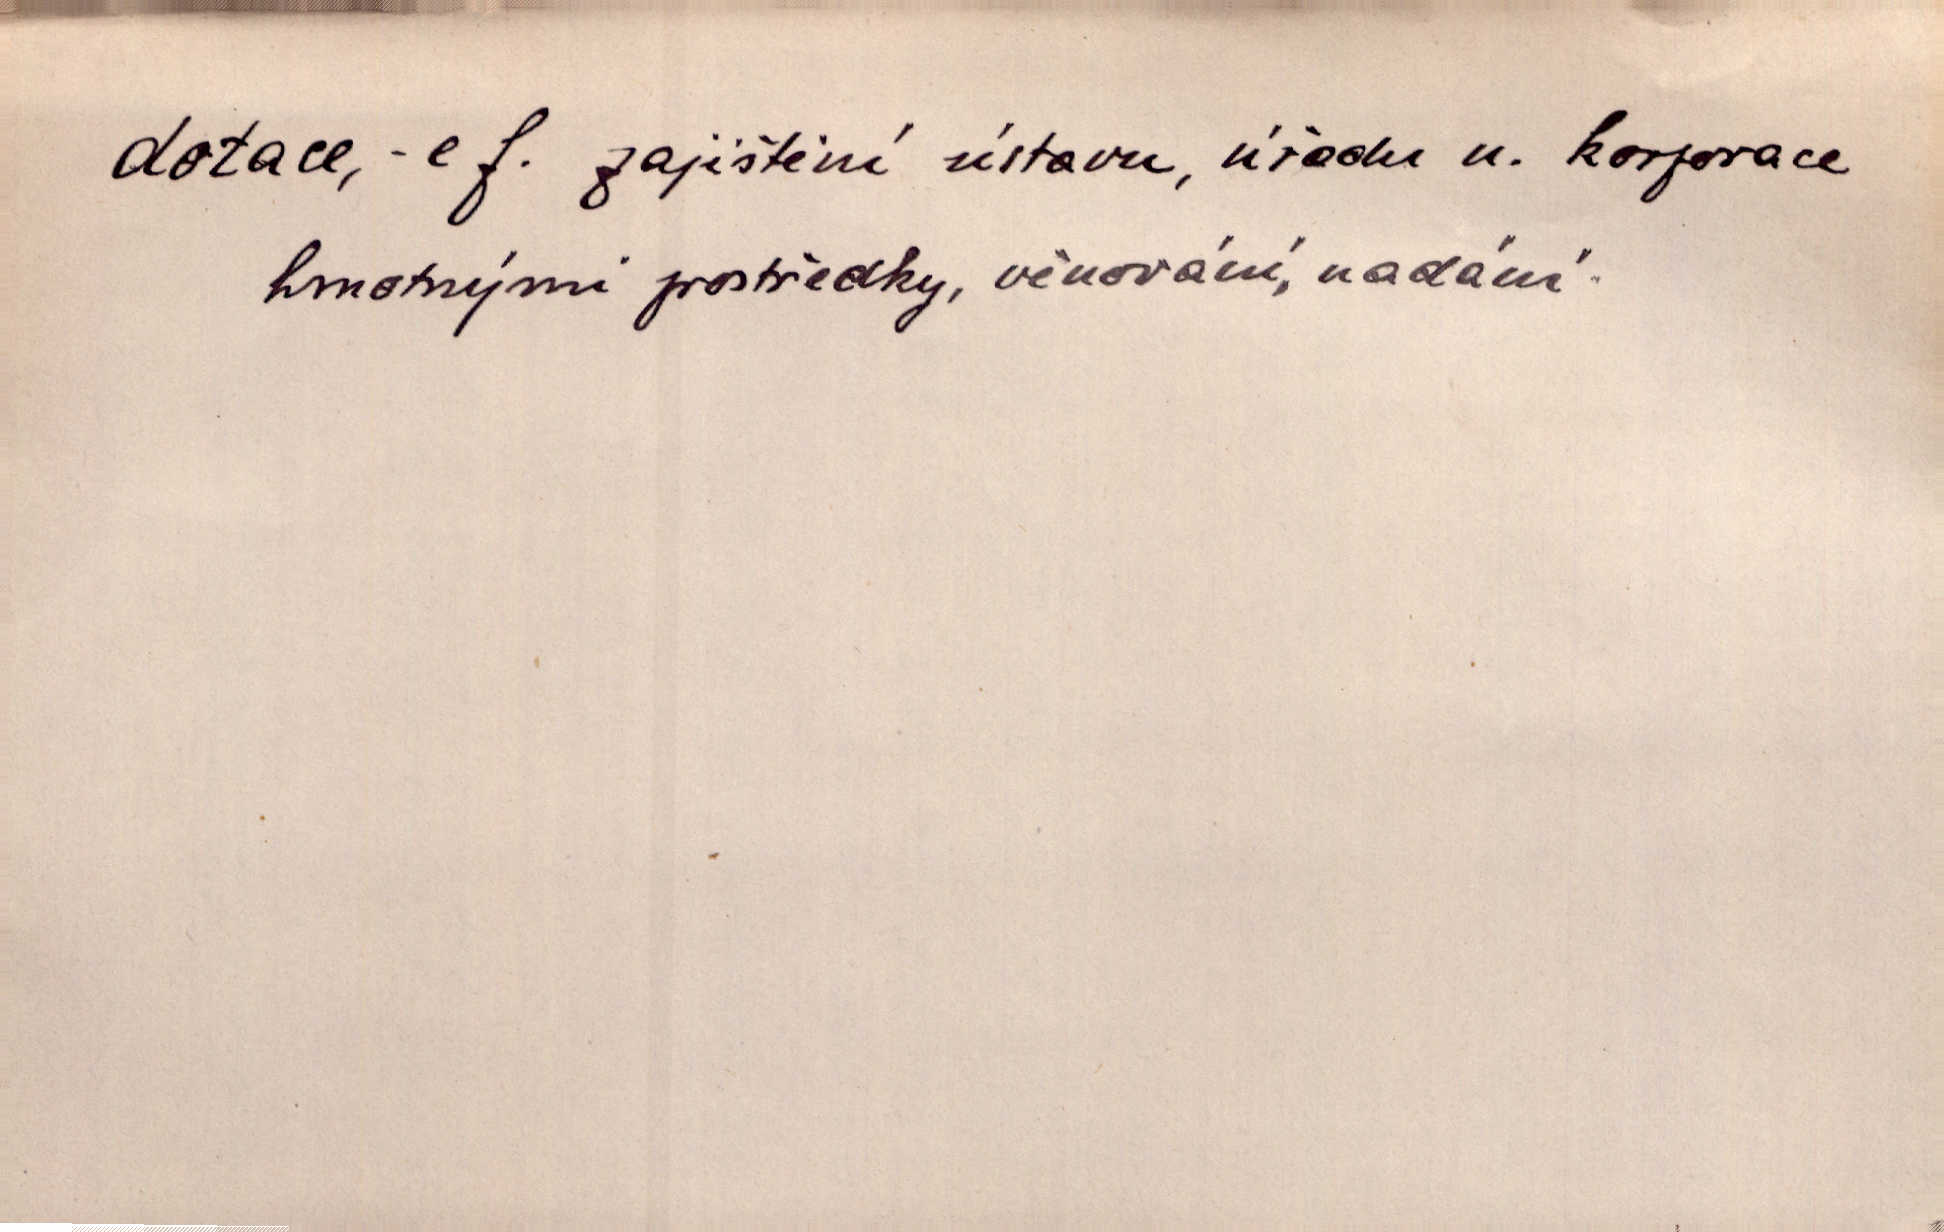 dotace, -e f. zajištění ústavu, úřadu n. korporace
hmotnými prostředky, věnování, nadání.